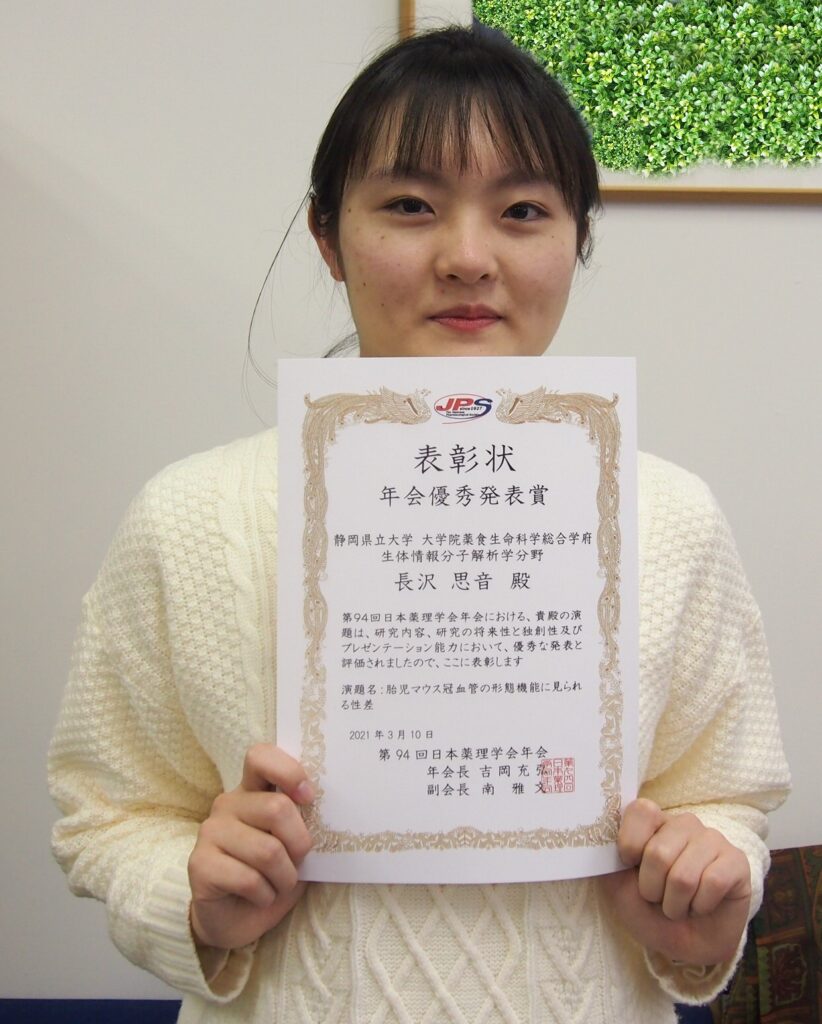 JPS
since1927
The Japanese
Pharmacological Society
表彰状
年会優秀発表賞
静岡県立大学 大学院薬食生命科学総合学府
生体情報分子解析学分野
長沢 思音 殿
第94回日本薬理学会年会における、貴殿の演
題は、研究内容、研究の将来性と独創性及び
プレゼンテーション能力において、優秀な発表と
評価されましたので、ここに表彰します
演題名:胎児マウス冠血管の形態機能に見られ
る性差
2021年3月10日
第94回日本薬理学会年会
年会長 吉岡充弘
副会長 南 雅文